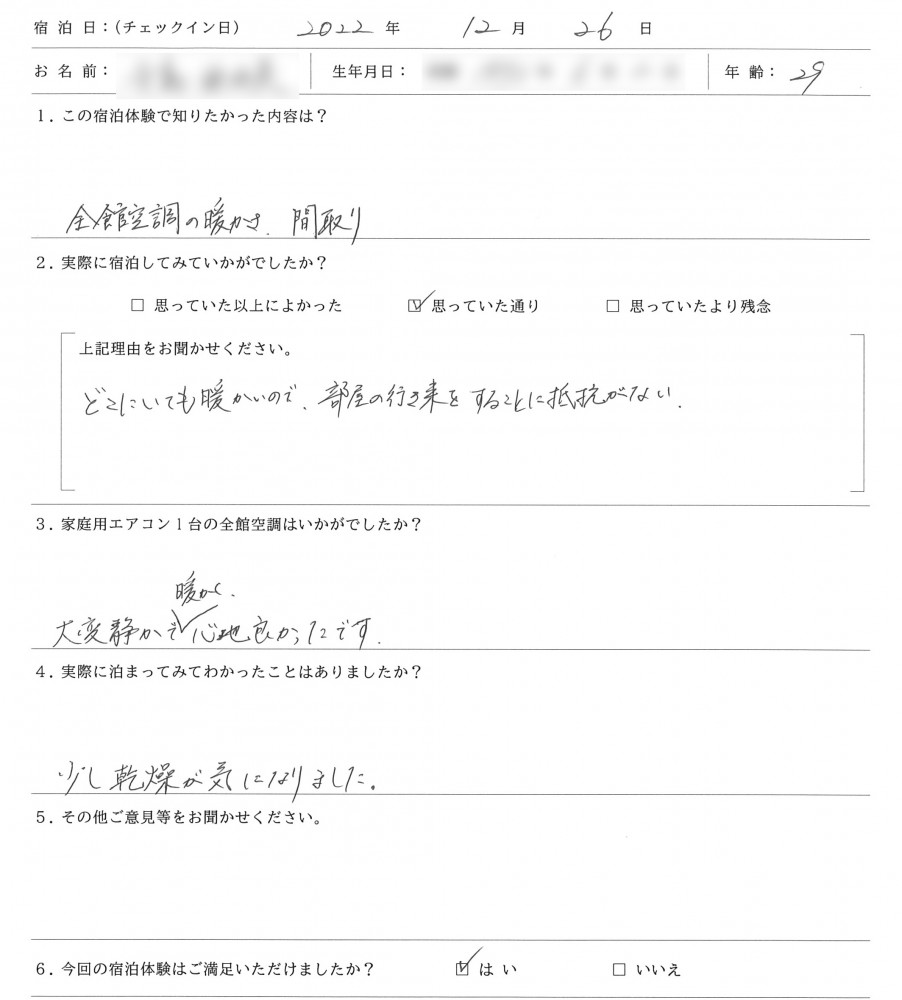 宿泊日：(チェックイン日) 2022年 12月 26日
お名前： 生年月日： 年齢： 29
1. この宿泊体験で知りたかった内容は？
全館空調の暖かさ、間取り
2. 実際に宿泊してみていかがでしたか？
□ 思っていた以上によかった ☑ 思っていた通り □ 思っていたより残念
上記理由をお聞かせください。
どこにいても暖かいので、部屋の行き来をすることに抵抗がない。
3. 家庭用エアコン1台の全館空調はいかがでしたか？
暖かく、
大変静かで心地良かったです。
4. 実際に泊まってみてわかったことはありましたか？
少し乾燥が気になりました。
5. その他ご意見等をお聞かせください。
6. 今回の宿泊体験はご満足いただけましたか？ ☑ はい □ いいえ